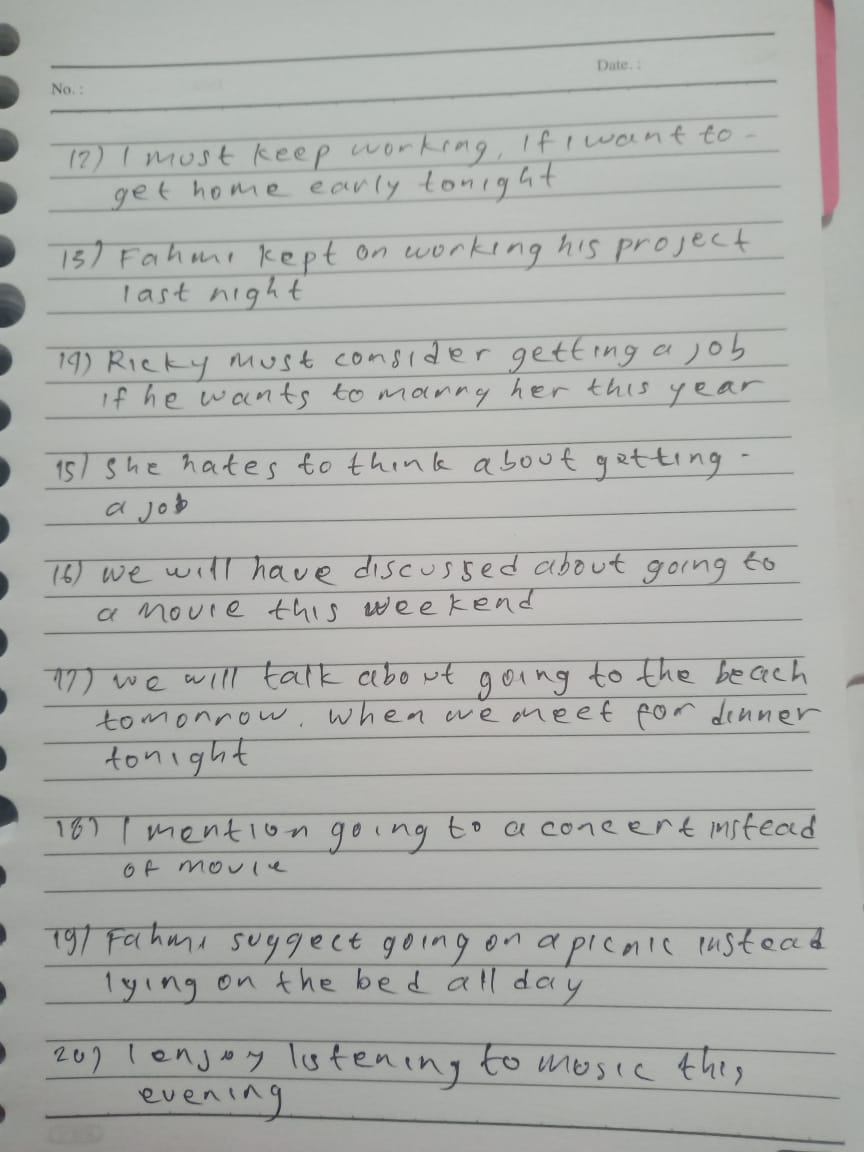 No. :
Date. :
12) I must keep working, if I want to -
get home early tonight
13) Fahmi kept on working his project
last night
14) Ricky must consider getting a job
if he wants to marry her this year
15) She hates to think about getting -
a job
16) we will have discussed about going to
a movie this weekend
17) we will talk about going to the beach
tomorrow, when we meet for dinner
tonight
18) I mention going to a concert instead
of movie
19) Fahmi suggect going on a picnic instead
lying on the bed all day
20) I enjoy listening to music this
evening